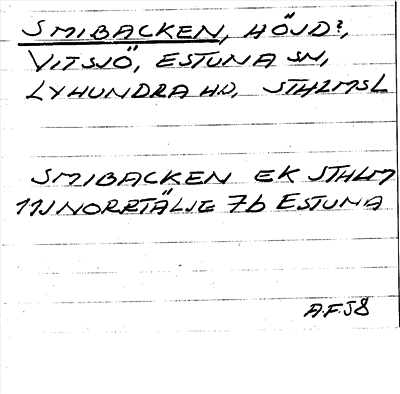 SMIBACKEN, HÖJD?,
VITSJÖ, ESTUNA SN,
LYHUNDRA HD, STHLMSL
SMIBACKEN EK STHLM
11J NORRTÄLJE 7b ESTUNA
A.F.58